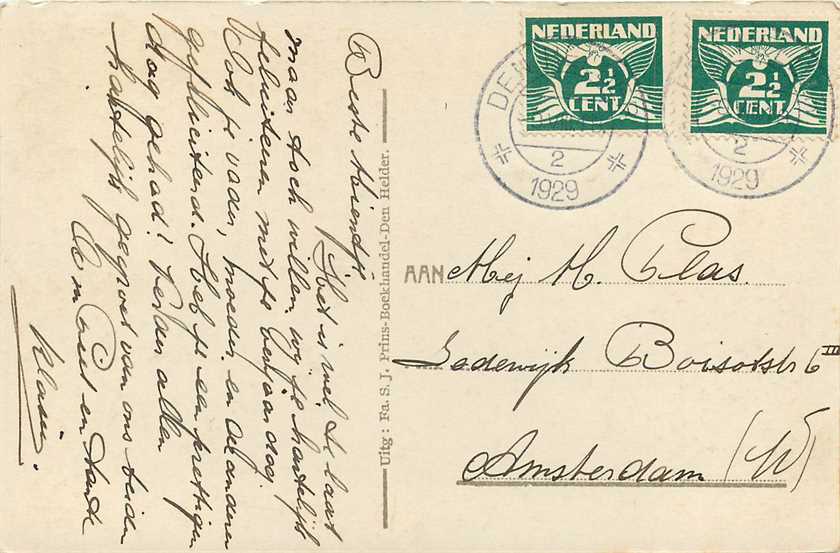 Beste Miendje.
Het is wel te laat
maar toch willen wij je hartelijk
feliciteeren met je verjaardag
Ook je vader, moeder en de anderen
gefeliciteerd. Heb je een prettigen
dag gehad? Verder allen
hartelijk gegroet van ons beiden
Oom Piet en tante
Klasin.
Uitg: Fa. S. J. Prins-Boekhandel-Den Helder.
NEDERLAND
2½
CENT
NEDERLAND
2½
CENT
DEN
2
1929
2
1929
AAN Mej M. Plas.
Lodewijk Boisotstr 6 III
Amsterdam (W)